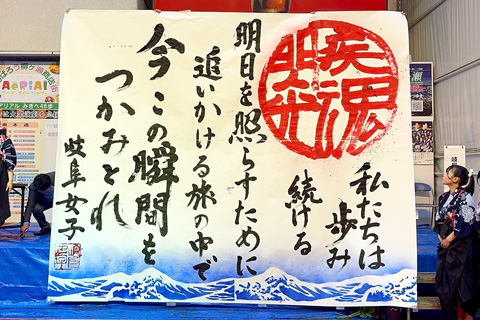 私たちは
歩み
続ける
明日を照らすために
追いかける旅の中で
今この瞬間を
つかみとれ
岐阜女子
AeRiAl
岐